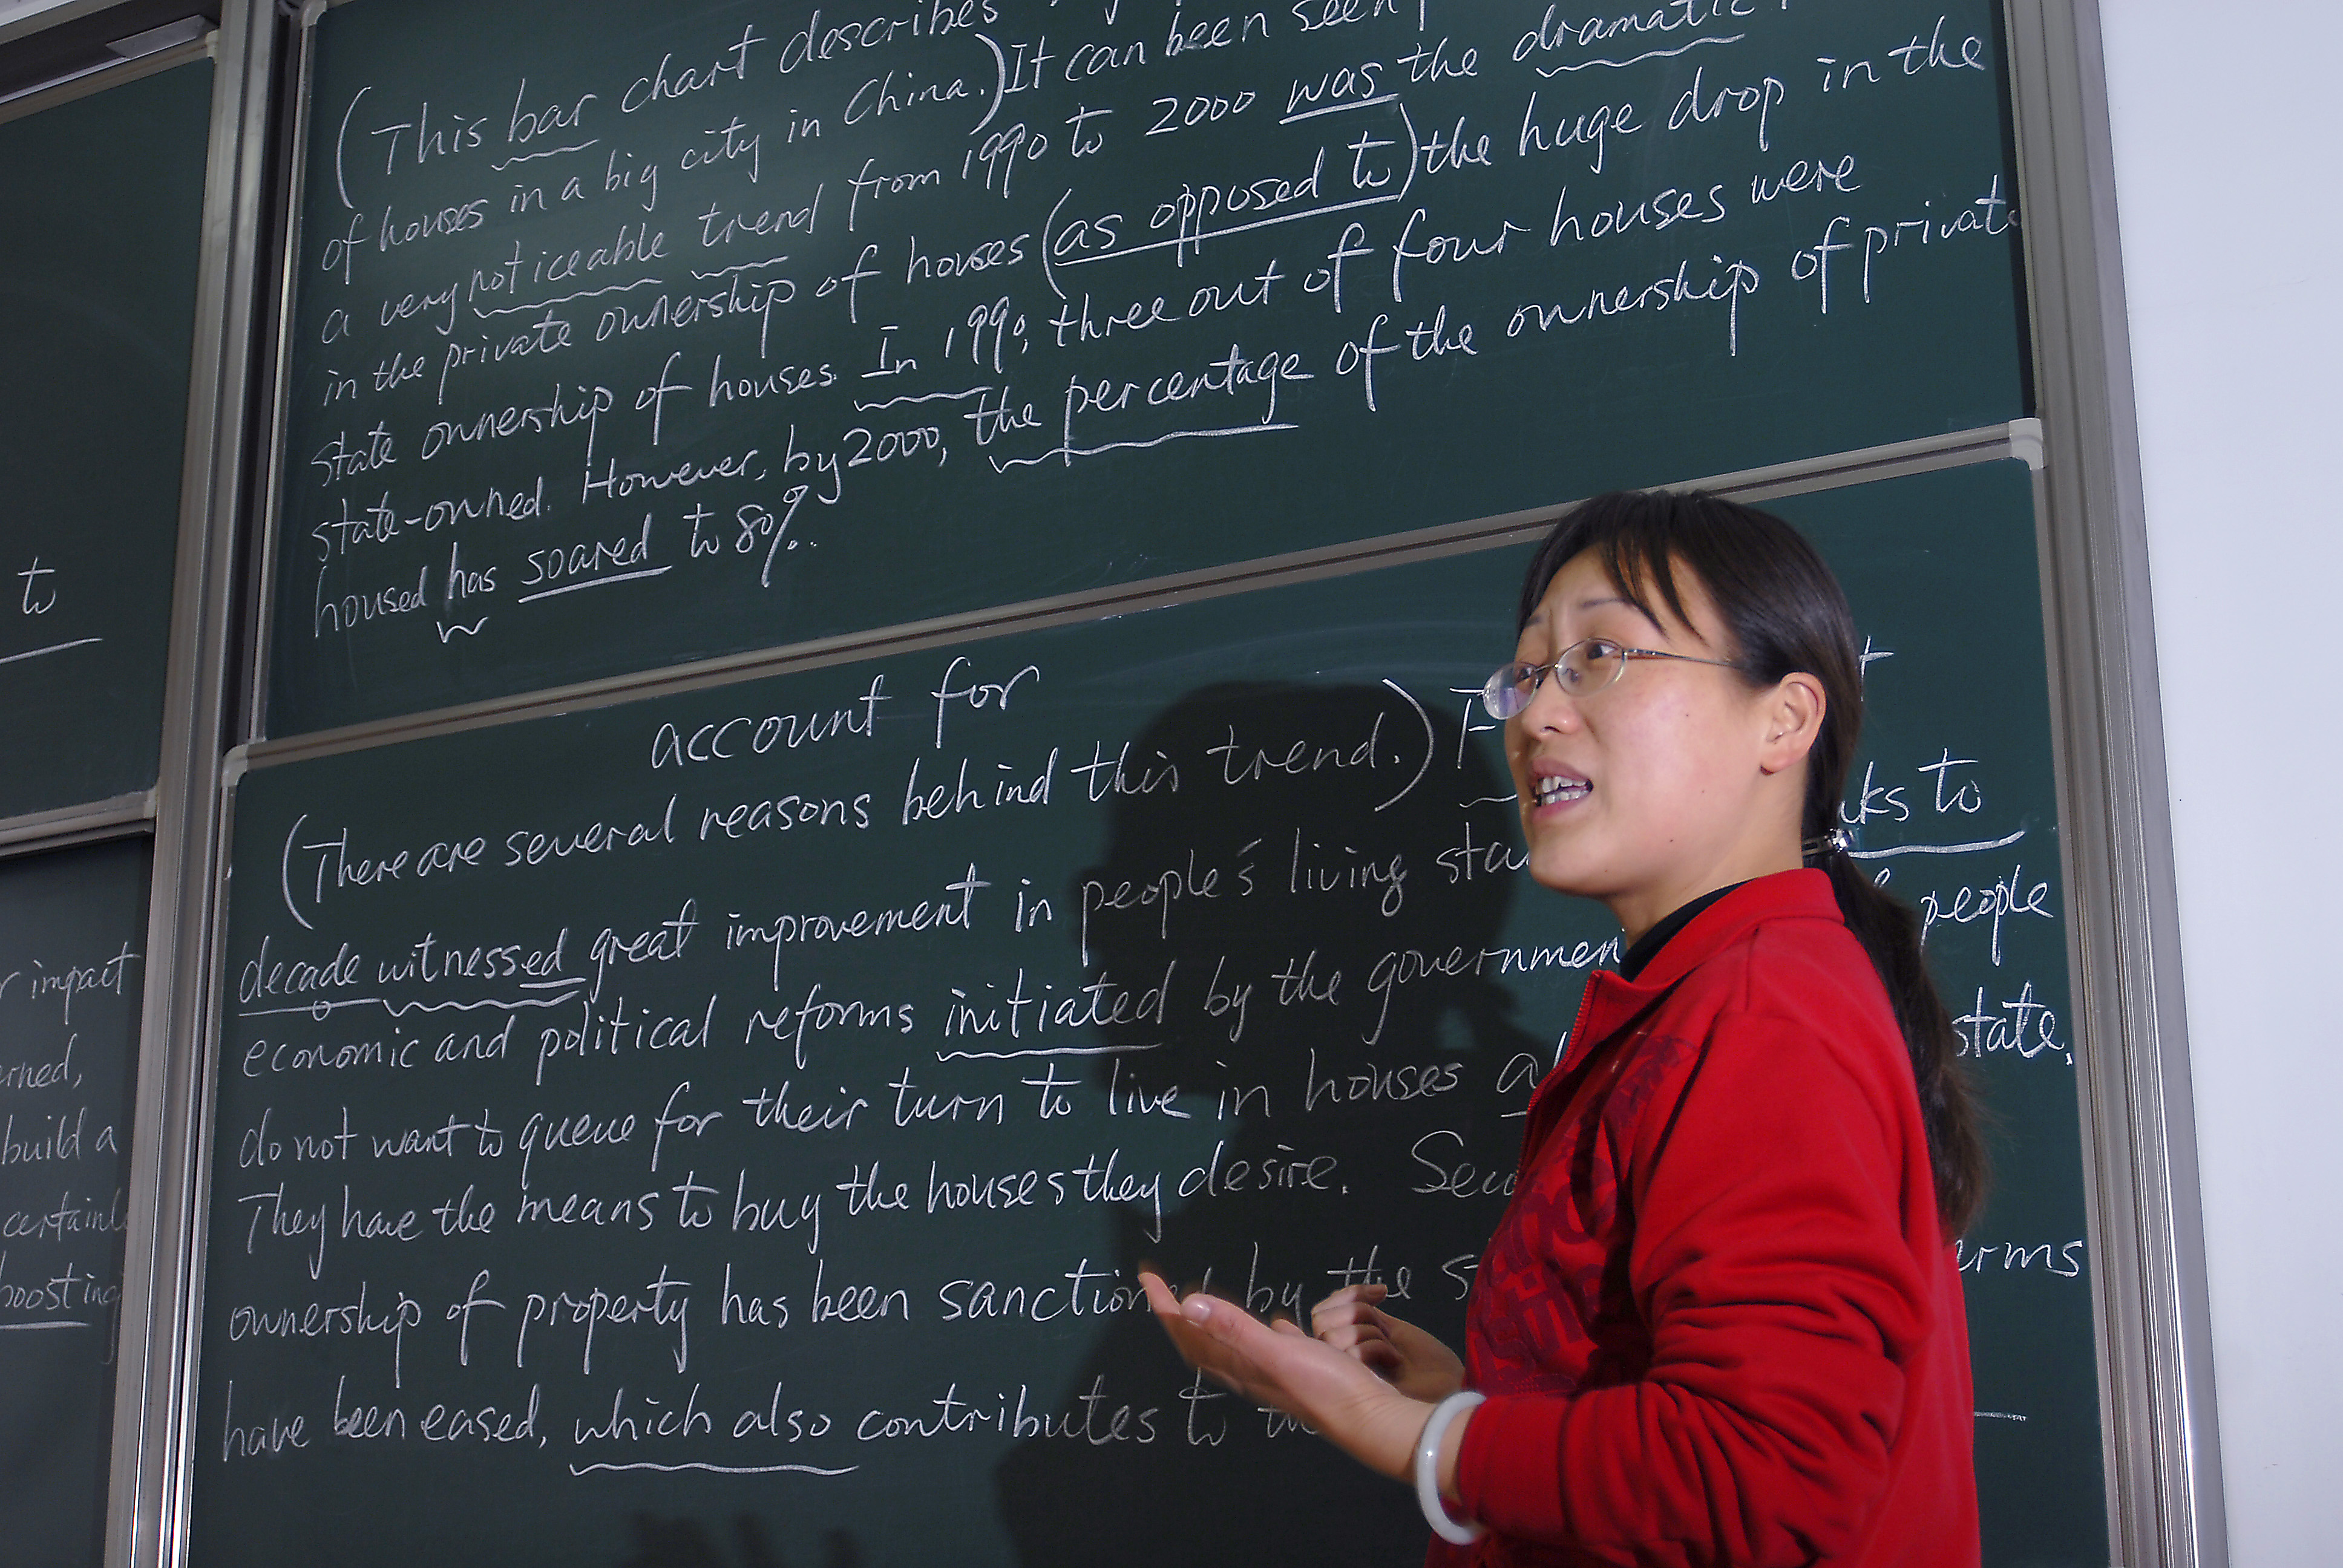 to
r impact
rned,
build a
certainl
boosting
(This bar chart describes
of houses in a big city in China.) It can been seen
a very noticeable trend from 1990 to 2000 was the dramatic
in the private ownership of houses (as opposed to) the huge drop in the
state ownership of houses. In 1990, three out of four houses were
state-owned. However, by 2000, the percentage of the ownership of privat
housed has soared to 80%.
account for
(There are several reasons behind this trend.) F
decade witnessed great improvement in people's living sta ks to
economic and political reforms initiated by the governmen people
do not want to queue for their turn to live in houses a state.
They have the means to buy the houses they desire. Seco
ownership of property has been sanction by the s erms
have been eased, which also contributes to